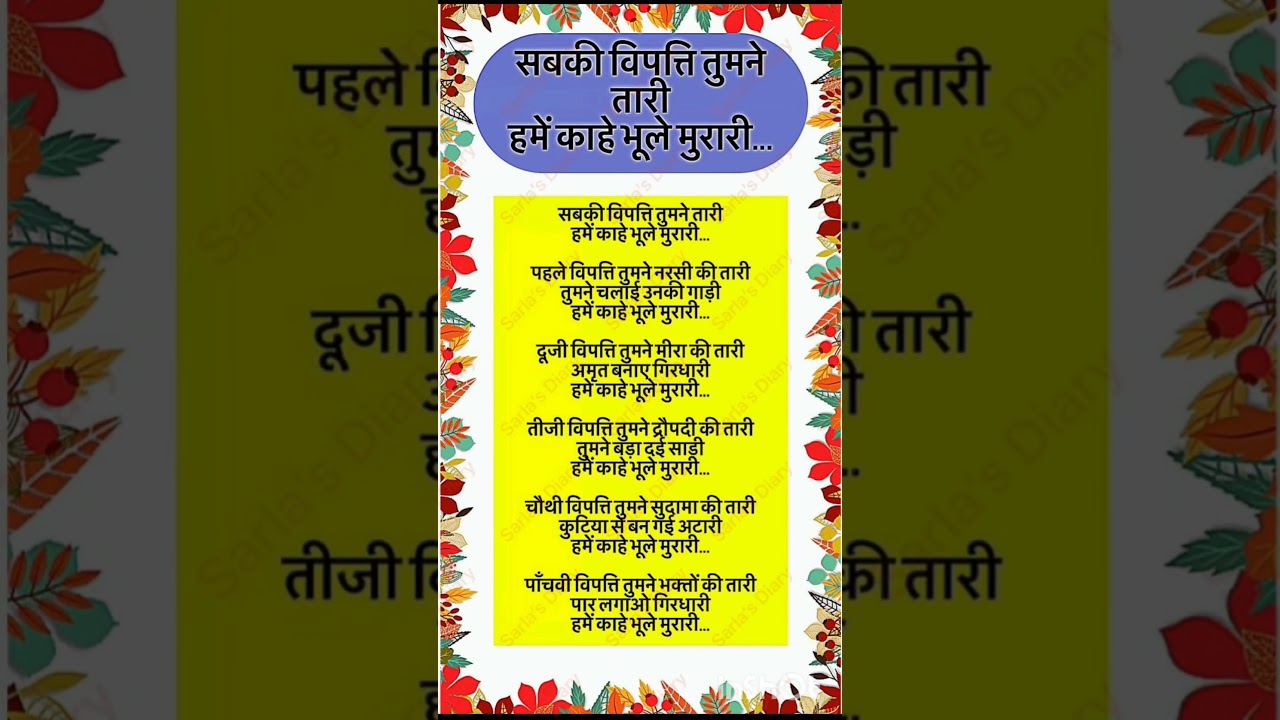 सबकी विपत्ति तुमने
तारी
हमें काहे भूले मुरारी...
सबकी विपत्ति तुमने तारी
हमें काहे भूले मुरारी...
पहले विपत्ति तुमने नरसी की तारी
तुमने चलाई उनकी गाड़ी
हमें काहे भूले मुरारी...
दूजी विपत्ति तुमने मीरा की तारी
अमृत बनाए गिरधारी
हमें काहे भूले मुरारी...
तीजी विपत्ति तुमने द्रौपदी की तारी
तुमने बड़ा दई साड़ी
हमें काहे भूले मुरारी...
चौथी विपत्ति तुमने सुदामा की तारी
कुटिया से बन गई अटारी
हमें काहे भूले मुरारी...
पाँचवी विपत्ति तुमने भक्तों की तारी
पार लगाओ गिरधारी
हमें काहे भूले मुरारी...
Sarla's Diary
InShOt